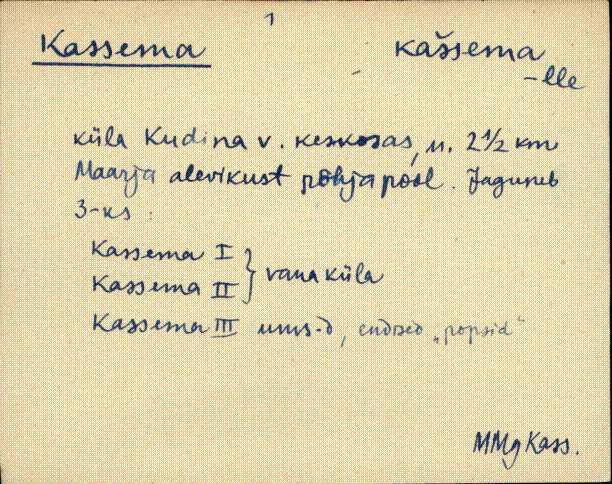 1
Kassema kašsema
-lle
küla Kudina v. keskosas, u. 2½ km
Maarja alevikust põhja pool. Jaguneb
3-ks:
Kassema I
Kassema II } vana küla
Kassema III uus-d, endised „popsid“
MMg Kass.